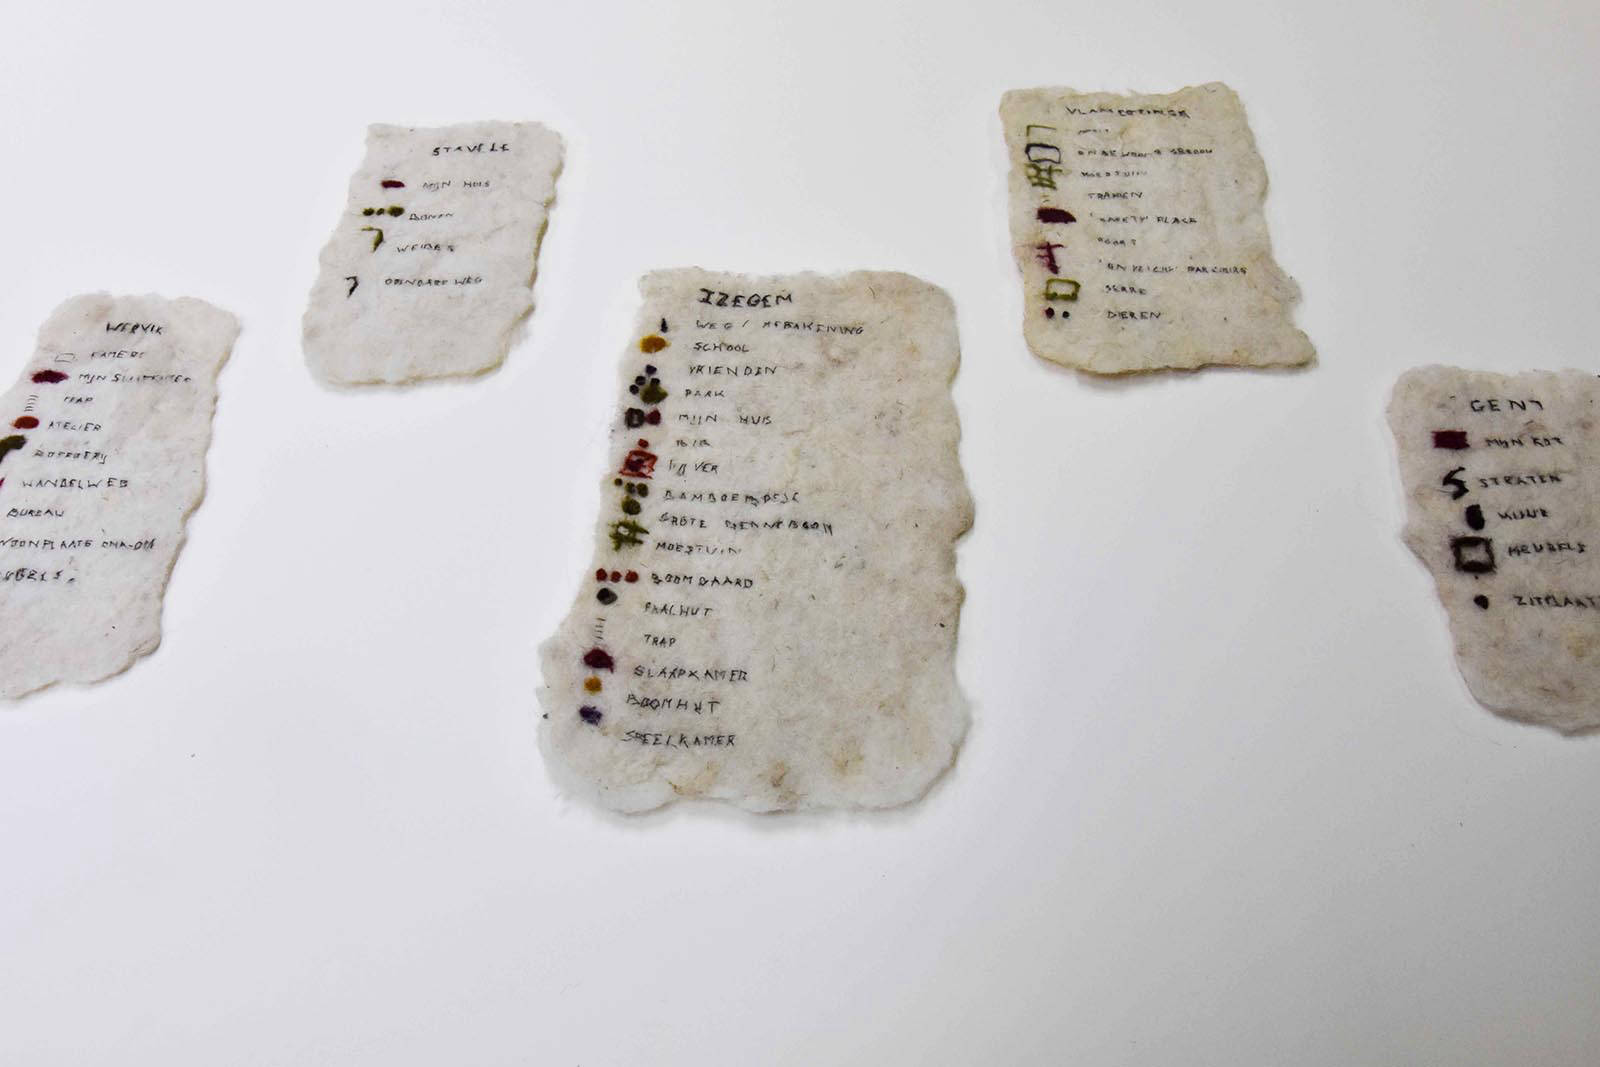 WERVIK
KAMERS
MIJN SLAAPKAMER
TRAP
ATELIER
WANDELWEB
BUREAU
WOONPLAATS OMA-OPA
STAVELE
MIJN HUIS
BOMEN
WEIDES
OPENBARE WEG
IZEGEM
WEG / AFBAKENING
SCHOOL
VRIENDEN
PARK
MIJN HUIS
VIJVER
BAMBOEBOSJE
GROTE DENNEBOOM
MOESTUIN
BOOMGAARD
PAALHUT
TRAP
SLAAPKAMER
BOOMHUT
SPEELKAMER
VLAMERTINGE
MOESTUIN
TRANEN
'SAFETY' PLACE
POORT
PARKING
SERRE
DIEREN
GENT
MIJN KOT
STRATEN
MEUBELS
ZITPLAAT